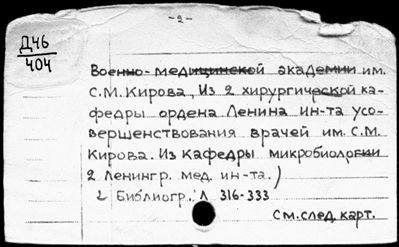 -2-
Д46
404
Военно-медицинской академии им.
С.М. Кирова, Из 2 хирургической ка-
федры ордена Ленина ин-та усо-
вершенствования врачей им. С.М.
Кирова. Из кафедры микробиологии
2 Ленингр. мед. ин-та.)
2 Библиогр.: Л. 316-333
См. след. карт.